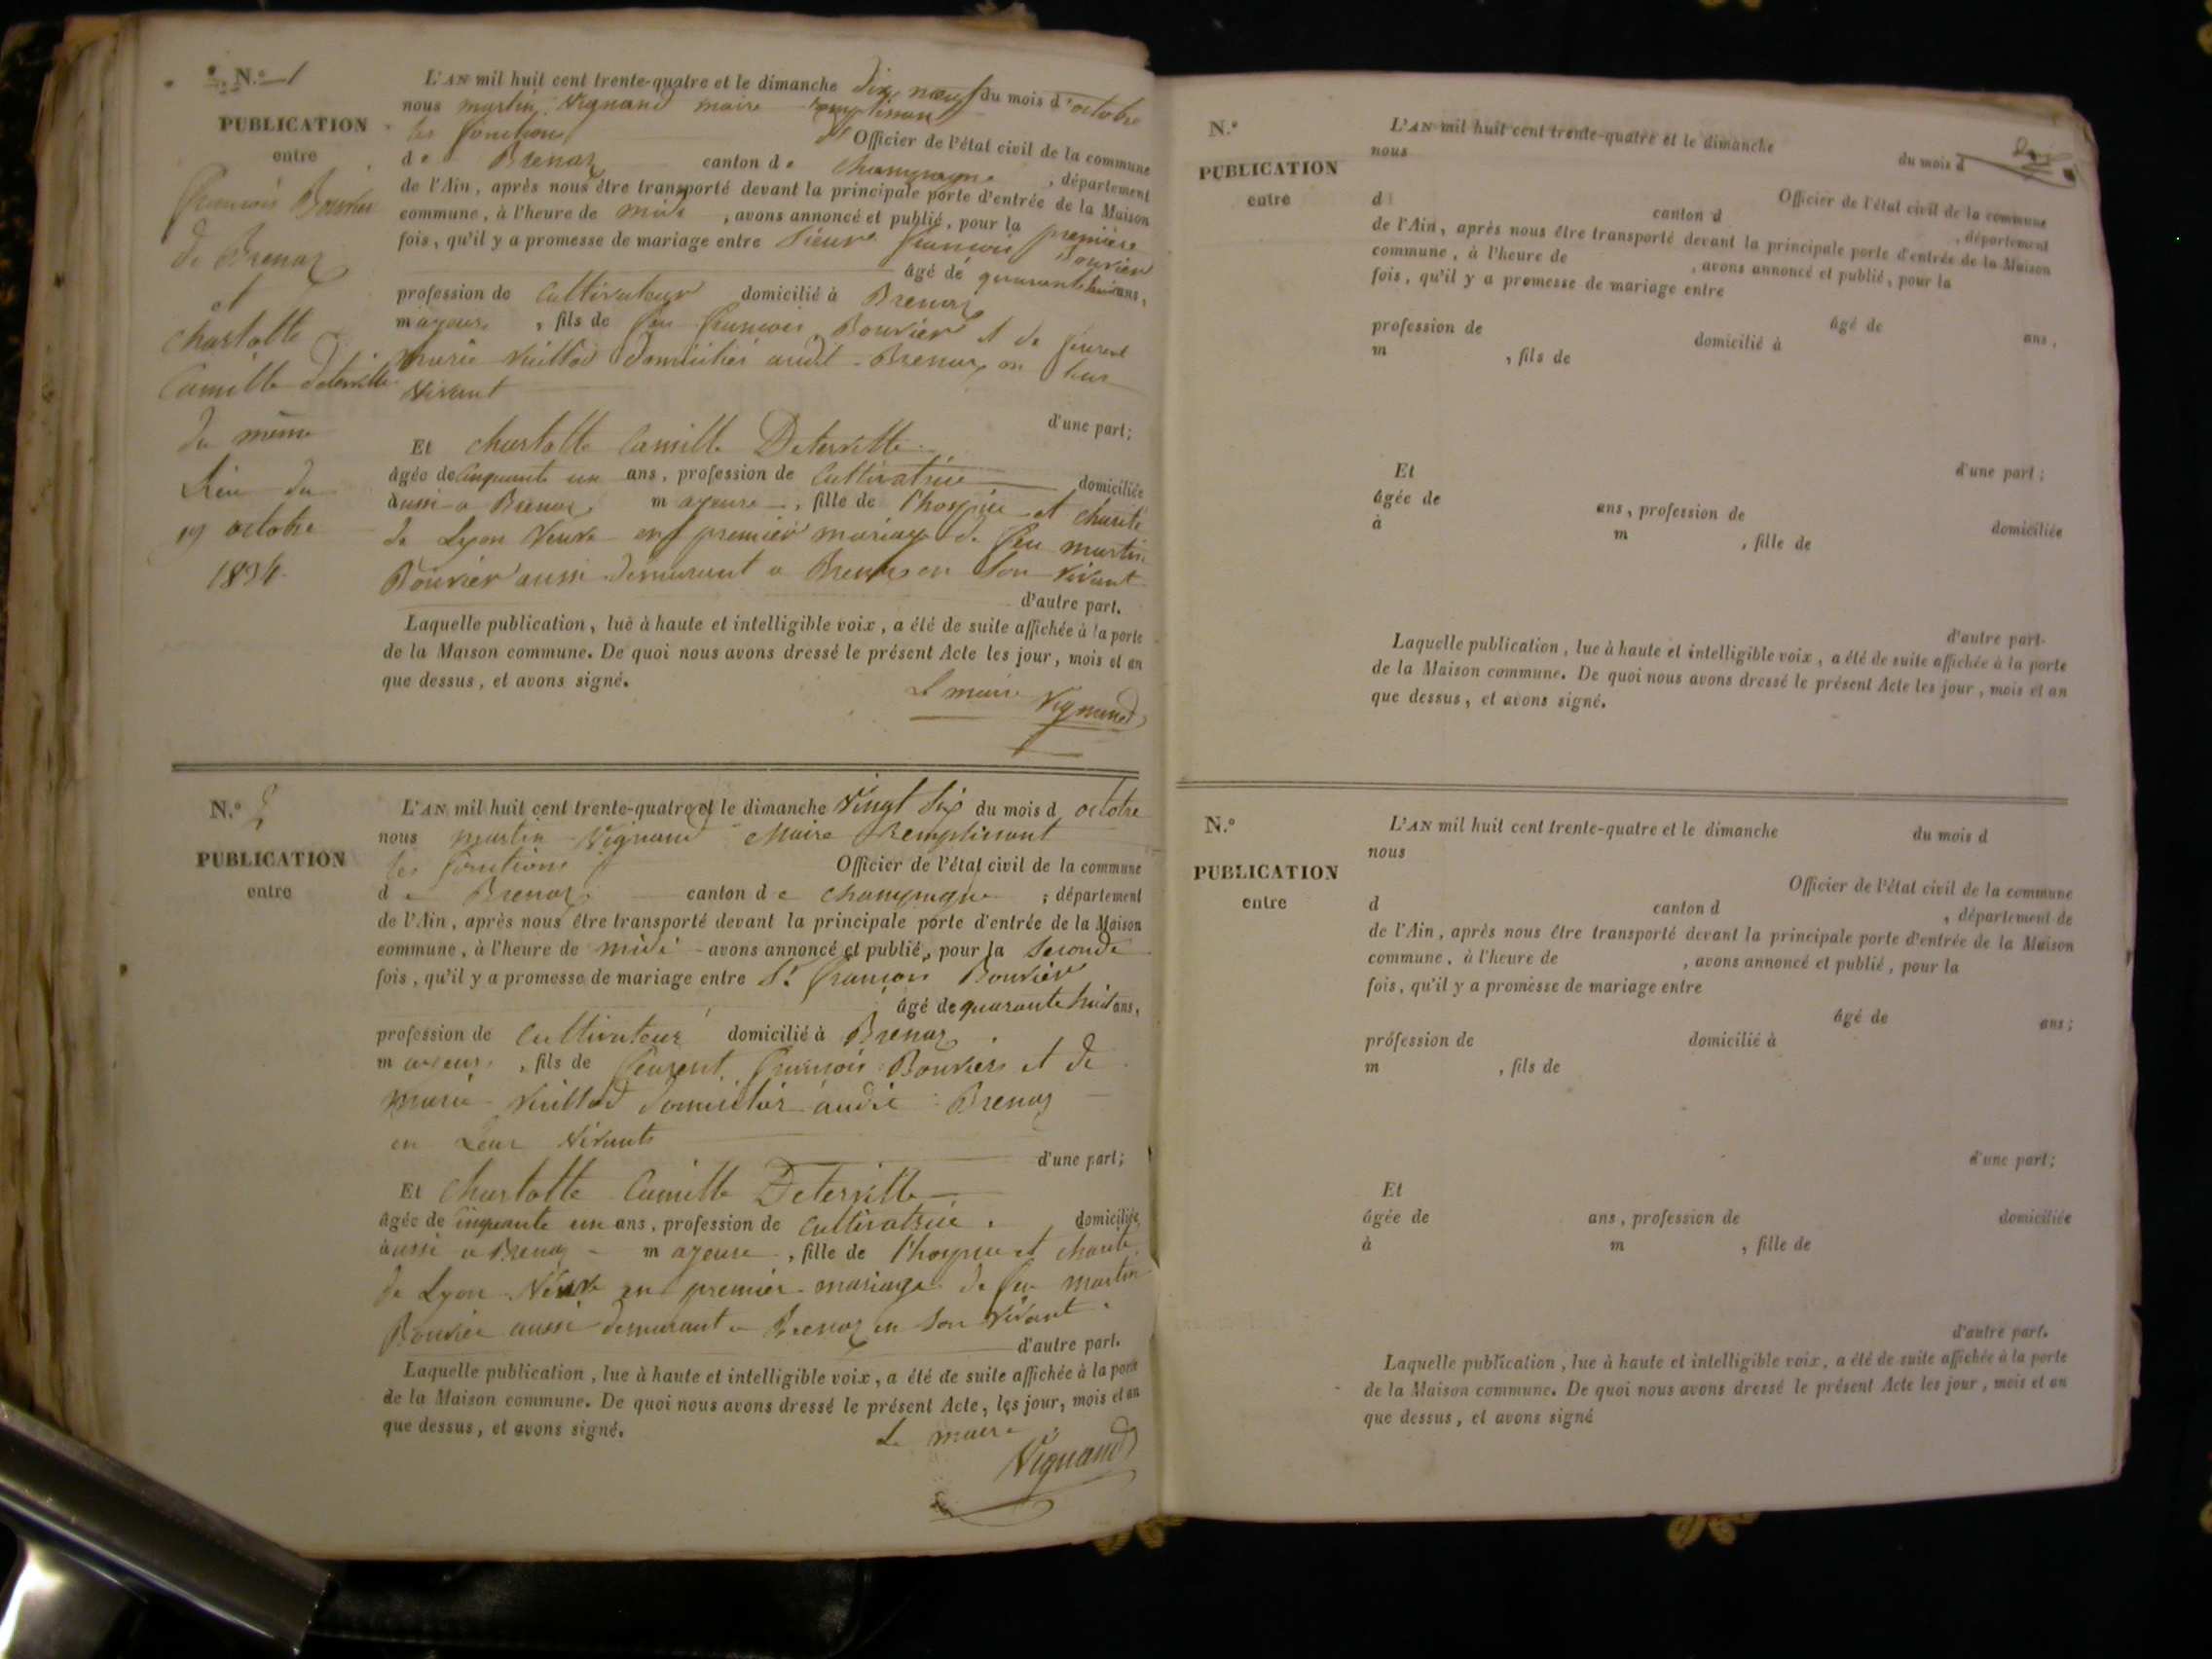 N.° 1
PUBLICATION
entre
françois Bouvier
de Brenaz
et
charlotte
Camille Deterville
du même
Lieu du
19 octobre
1834
L'AN mil huit cent trente-quatre et le dimanche dix neuf du mois d'octobre
nous martin Vignand maire remplissant
les fonctions d' Officier de l'état civil de la commune
de Brenaz canton de Champagne, département
de l'Ain, après nous être transporté devant la principale porte d'entrée de la Maison
commune, à l'heure de midi, avons annoncé et publié, pour la première
fois, qu'il y a promesse de mariage entre Sieur françois Bouvier
âgé de quarante huit ans,
profession de Cultivateur domicilié à Brenaz
majeur, fils de feu françois Bouvier et de
marie Vuillod domiciliés audit Brenaz en leur
Vivant
d'une part;
Et charlotte Camille Deterville
âgée de Cinquante un ans, profession de Cultivatrice domiciliée
aussi a Brenaz majeure, fille de l'hospice et charité
de Lyon Veuve en premier mariage de feu martin
Bouvier aussi demeurant a Brenaz en son Vivant
d'autre part.
Laquelle publication, lue à haute et intelligible voix, a été de suite affichée à la porte
de la Maison commune. De quoi nous avons dressé le présent Acte les jour, mois et an
que dessus, et avons signé.
Le maire Vignand
N.° 2
PUBLICATION
entre
L'AN mil huit cent trente-quatre et le dimanche Vingt Six du mois d octobre
nous martin Vignand Maire Remplissant
les fonctions d' Officier de l'état civil de la commune
de Brenaz canton de champagne; département
de l'Ain, après nous être transporté devant la principale porte d'entrée de la Maison
commune, à l'heure de midi avons annoncé et publié, pour la seconde
fois, qu'il y a promesse de mariage entre S.r françois Bouvier
âgé de quarante huit ans,
profession de Cultivateur domicilié à Brenaz
majeur, fils de françois Bouvier et de
marie Vuillod domiciliés audit Brenaz
en Leur Vivants
d'une part;
Et Charlotte Camille Deterville
âgée de Cinquante un ans, profession de Cultivatrice. domiciliée
aussi a Brenaz majeure, fille de l'hospice et charité
de Lyon Veuve en premier mariage de feu martin
Bouvier aussi demeurant a Brenaz en son Vivant.
d'autre part.
Laquelle publication, lue à haute et intelligible voix, a été de suite affichée à la porte
de la Maison commune. De quoi nous avons dressé le présent Acte, les jour, mois et an
que dessus, et avons signé.
Le maire
Vignand
N.°
PUBLICATION
entre
L'AN mil huit cent trente-quatre et le dimanche du mois d
nous
Officier de l'état civil de la commune
d canton d, département
de l'Ain, après nous être transporté devant la principale porte d'entrée de la Maison
commune, à l'heure de, avons annoncé et publié, pour la
fois, qu'il y a promesse de mariage entre
âgé de ans,
profession de domicilié à
m, fils de
d'une part;
Et
âgée de ans, profession de domiciliée
à m, fille de
d'autre part.
Laquelle publication, lue à haute et intelligible voix, a été de suite affichée à la porte
de la Maison commune. De quoi nous avons dressé le présent Acte les jour, mois et an
que dessus, et avons signé.
N.°
PUBLICATION
entre
L'AN mil huit cent trente-quatre et le dimanche du mois d
nous
Officier de l'état civil de la commune
d canton d, département de
de l'Ain, après nous être transporté devant la principale porte d'entrée de la Maison
commune, à l'heure de, avons annoncé et publié, pour la
fois, qu'il y a promesse de mariage entre
âgé de ans;
profession de domicilié à
m, fils de
d'une part;
Et
âgée de ans, profession de domiciliée
à m, fille de
d'autre part.
Laquelle publication, lue à haute et intelligible voix, a été de suite affichée à la porte
de la Maison commune. De quoi nous avons dressé le présent Acte les jour, mois et an
que dessus, et avons signé